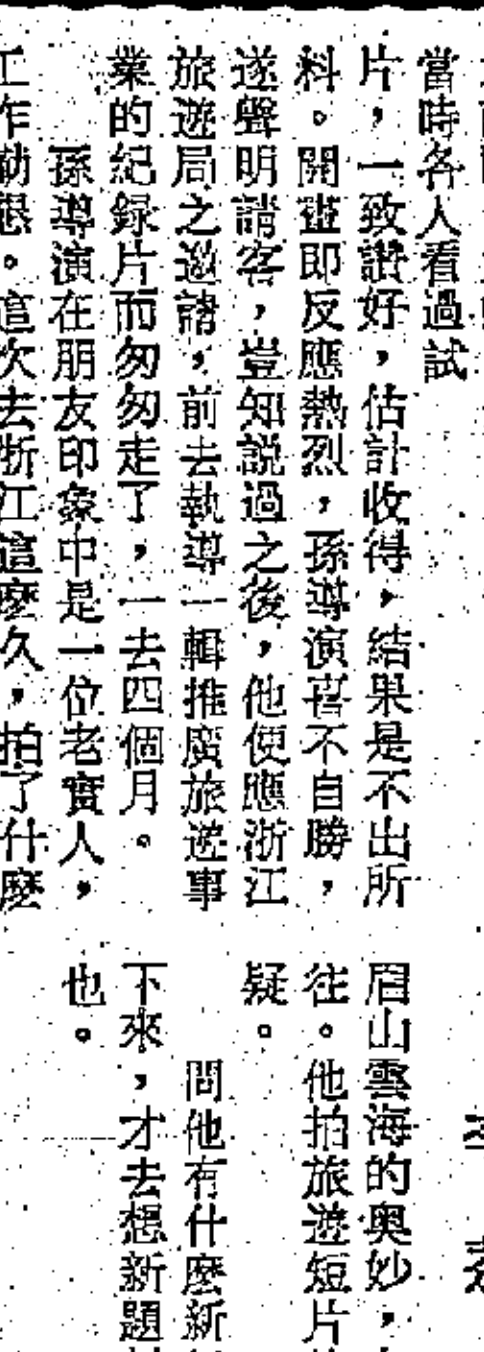 當時各人看過試
片，一致讚好，估計收得，結果是不出所
料。開畫即反應熱烈，孫導演喜不自勝，
遂聲明請客，豈知説過之後，他便應浙江
旅遊局之邀請，前去執導一輯推廣旅遊事
業的紀録片而匆匆走了，一去四個月。
孫導演在朋友印象中是一位老實人，
工作勤懇。這次去浙江這麽久，拍了什麽
眉山雲海的奥妙，
往。他拍旅遊短片
疑。
問他有什麽新
下來，才去想新題
也。